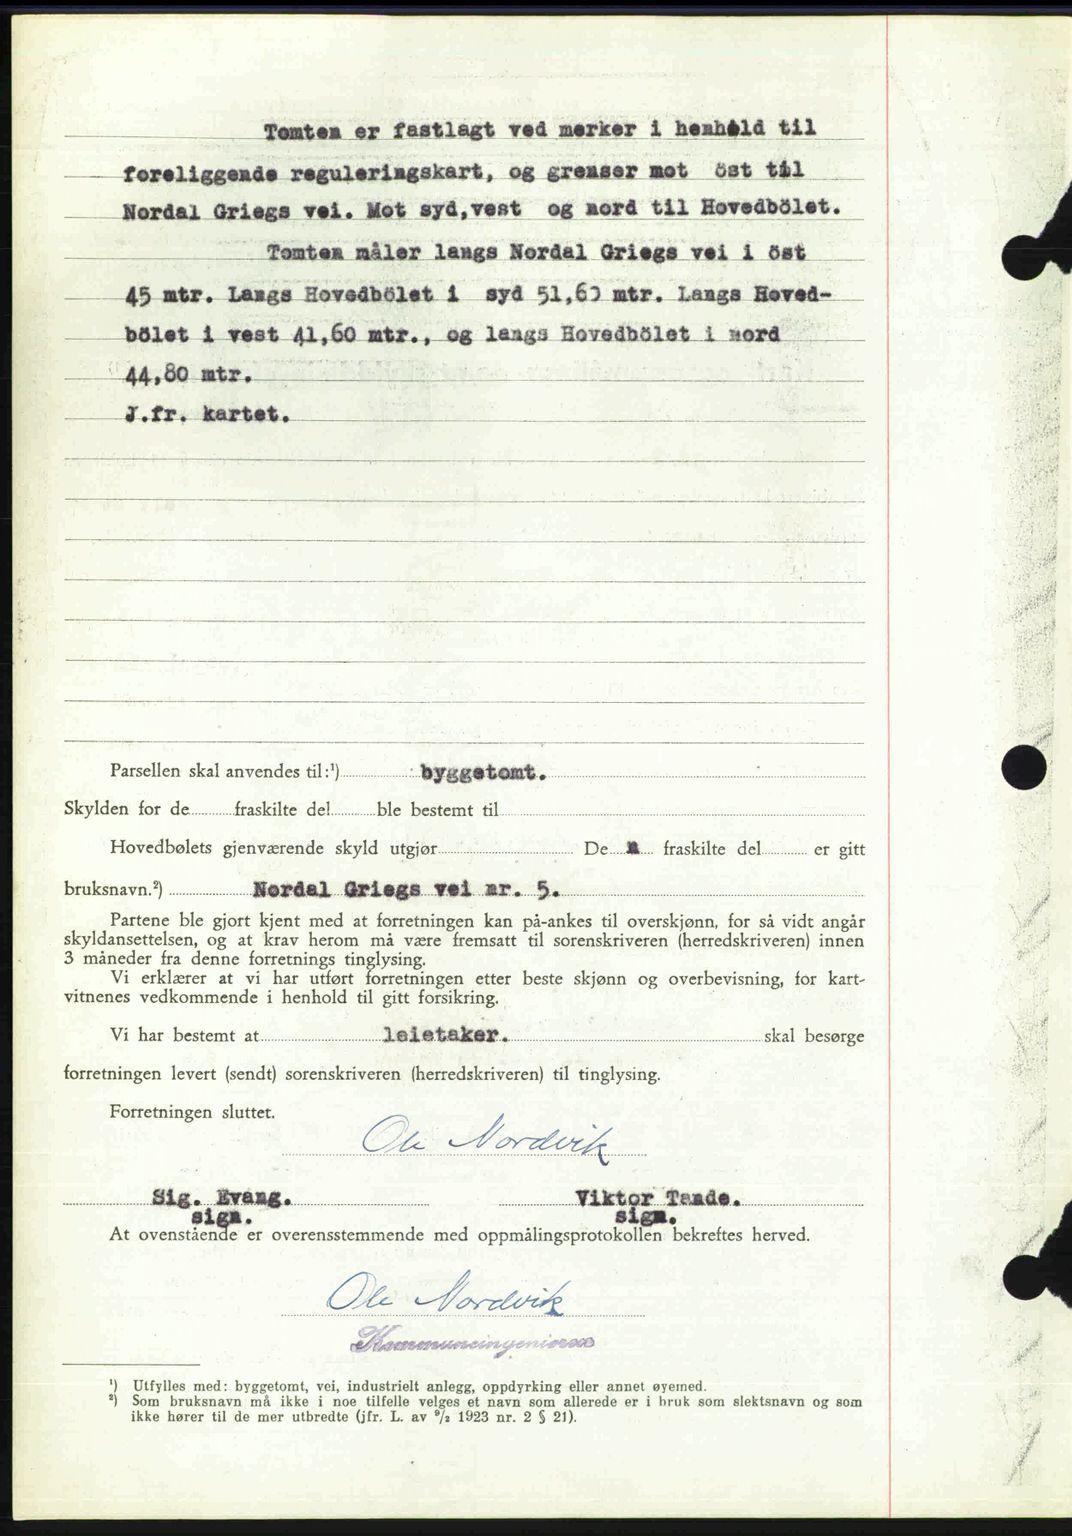 Tomten er fastlagt ved merker i henhold til
foreliggende reguleringskart, og grenser mot öst til
Nordal Griegs vei. Mot syd,vest og nord til Hovedbölet.
Tomten måler langs Nordal Griegs vei i öst
45 mtr. Langs Hovedbölet i syd 51,60 mtr. Langs Hoved-
bölet i vest 41,60 mtr., og langs Hovedbölet i nord
44,80 mtr.
J.fr. kartet.
Parsellen skal anvendes til:¹) byggetomt.
Skylden for de fraskilte del ble bestemt til
Hovedbølets gjenværende skyld utgjør De n fraskilte del er gitt
bruksnavn.²) Nordal Griegs vei nr. 5.
Partene ble gjort kjent med at forretningen kan på-ankes til overskjønn, for så vidt angår
skyldansettelsen, og at krav herom må være fremsatt til sorenskriveren (herredskriveren) innen
3 måneder fra denne forretnings tinglysing.
Vi erklærer at vi har utført forretningen etter beste skjønn og overbevisning, for kart-
vitnenes vedkommende i henhold til gitt forsikring.
Vi har bestemt at leietaker. skal besørge
forretningen levert (sendt) sorenskriveren (herredskriveren) til tinglysing.
Forretningen sluttet.
Ole Nordvik
Sig. Evang. Viktor Tande.
sign. sign.
At ovenstående er overensstemmende med oppmålingsprotokollen bekreftes herved.
Ole Nordvik
Kommuneingeniøren
¹) Utfylles med: byggetomt, vei, industrielt anlegg, oppdyrking eller annet øyemed.
²) Som bruksnavn må ikke i noe tilfelle velges et navn som allerede er i bruk som slektsnavn og som
ikke hører til de mer utbredte (jfr. L. av ⁹/₂ 1923 nr. 2 § 21).